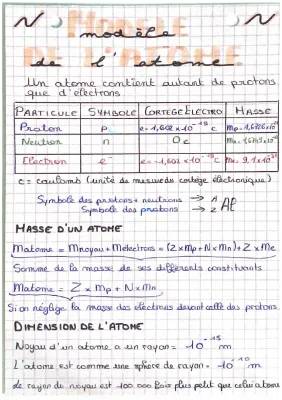 Modèle
de l'atome
Un atome contient autant de protons
que d'électrons
PARTICULE SYMBOLE CORTEGE ELECTRO MASSE
Proton p e = 1,602 x 10⁻¹⁹ C
Neutron n 0c
Electron e⁻ e = -1,602 x 10⁻¹⁹ C
c = coulomb (unité de mesure du cortège électronique)
Symbole des protons + neutrons → A
Symbole des protons → Z Al
MASSE D'UN ATOME
Matome = Mnoyau + Melectrons = (Z x Mp + N x Mn) + Z x Me
Somme de la masse de ses différents constituants
Matome = Z x Mp + N x Mn
Si on néglige la masse des électrons devant celle des protons
DIMENSION DE L'ATOME
Noyau d'un atome a un rayon = 10⁻¹⁵ m
L'atome est comme une sphère de rayon = 10⁻¹⁰ m
de rayon du noyau est 100 000 fois plus petit que celui atome